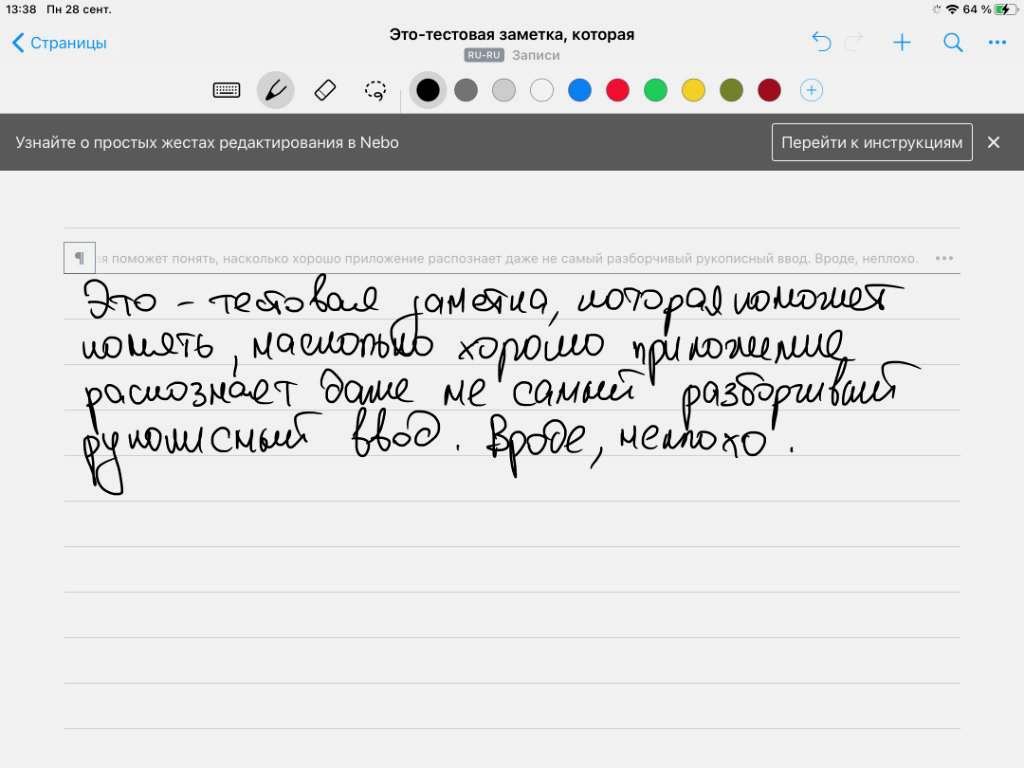 13:38 Пн 28 сент. 64 %
Страницы
Это-тестовая заметка, которая
RU-RU Записи
Узнайте о простых жестах редактирования в Nebo Перейти к инструкциям
ая поможет понять, насколько хорошо приложение распознает даже не самый разборчивый рукописный ввод. Вроде, неплохо.
Это - тестовая заметка, которая поможет
понять, насколько хорошо приложение
распознает даже не самый разборчивый
рукописный ввод. Вроде, неплохо.